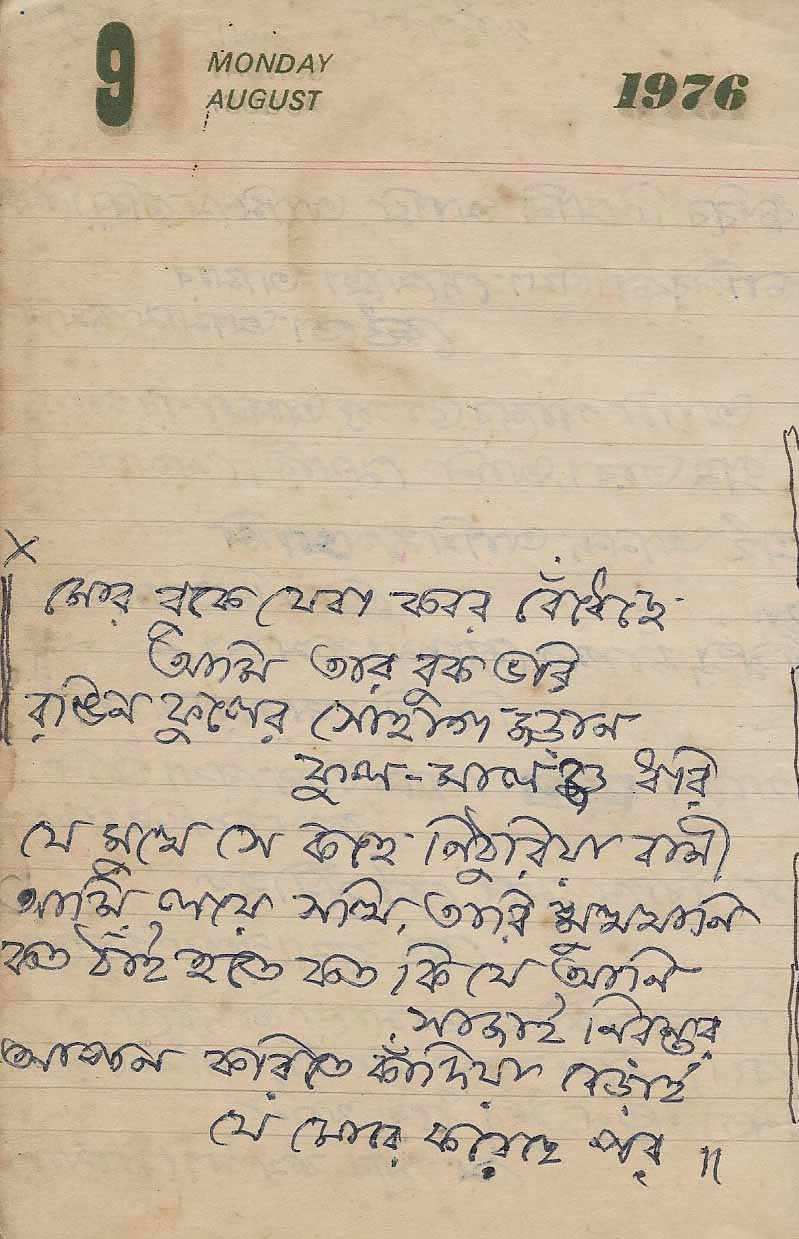 9 MONDAY
AUGUST 1976
মোর বুকে যেবা কবর বেঁধেছে
আমি তার বুক ভরি
রঙিন ফুলের সোহাগ জড়ান
ফুল-মালঞ্চ ধরি
যে মুখে সে কহে নিঠুরিয়া বাণী
আমি লয়ে সখি, তারি মুখখানি
কত ঠাঁই হতে কত কি যে আনি
সাজাই নিরন্তর
আপন করিতে কাঁদিয়া বেড়াই
যে মোরে করেছে পর ॥